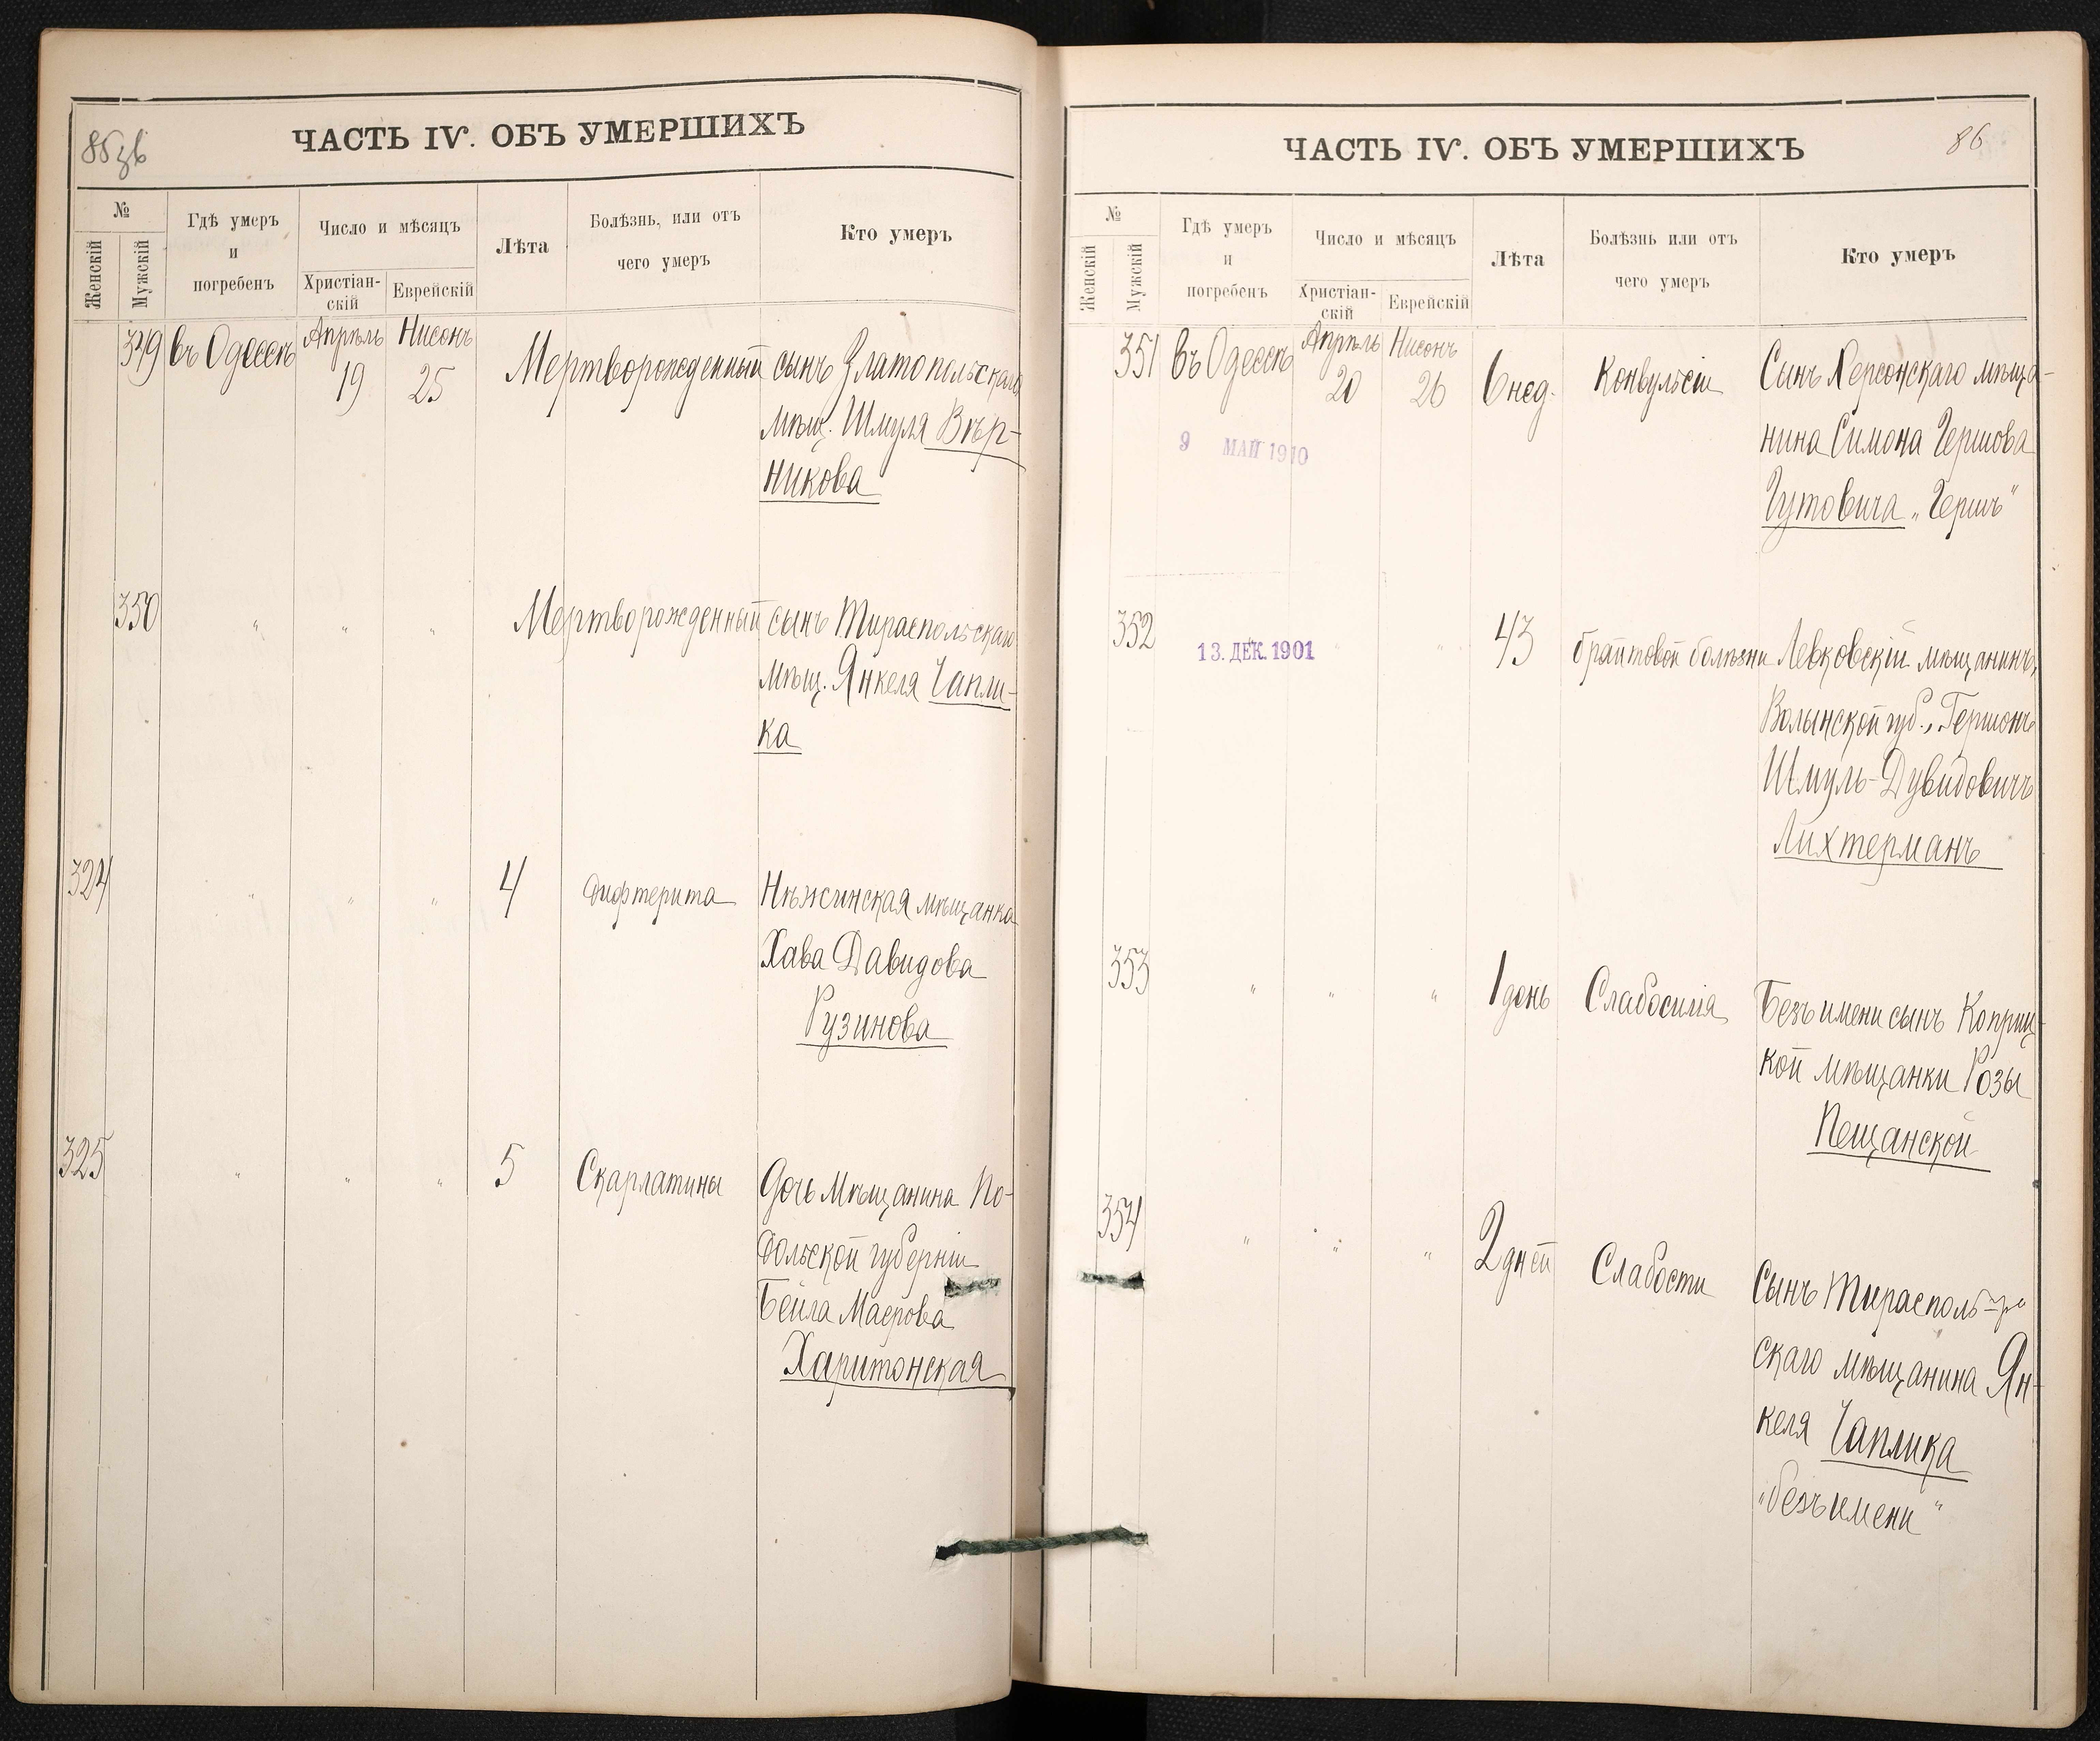 85 зв
ЧАСТЬ IV. ОБЪ УМЕРШИХЪ
№
Женскій
Мужскій
Гдѣ умеръ
и
погребенъ
Число и мѣсяцъ
Христіан-
скій
Еврейскій
Лѣта
Болѣзнь, или отъ
чего умеръ
Кто умеръ
349 въ Одессѣ Апрѣль Нисонъ Мертворожденный сынъ Златопольскаго
19 25 мѣщ. Шмуля Вѣр-
никова
350 " " " Мертворожденный сынъ Тираспольскаго
мѣщ. Янкеля Чапли-
ка
324 " " " 4 дифтерита Нѣжинская мѣщанка
Хава Давидова
Рузинова
325 " " " 5 Скарлатины Дочь мѣщанина По-
дольской губерніи
Бейла Маерова
Харитонская
86
ЧАСТЬ IV. ОБЪ УМЕРШИХЪ
№
Женскій
Мужскій
Гдѣ умеръ
и
погребенъ
Число и мѣсяцъ
Христіан-
скій
Еврейскій
Лѣта
Болѣзнь или отъ
чего умеръ
Кто умеръ
351 въ Одессѣ Апрѣль Нисонъ 6 нед. Конвульсіи Сынъ Херсонскаго мѣща-
20 26 нина Симона Гершова
9 МАЙ 1910
Гутовича „Герш"
352 13. ДЕК. 1901 " " 43 брайтовой болѣзни Левковскій мѣщанинъ,
Волынской губ., Гершонъ
Шмуль-Дувидовичъ
Лихтерманъ
353 " " " 1 день Слабосилія Безъ имени сынъ Коприц-
кой мѣщанки Розы
Пещанской
354 " " " 2 дней Слабости Сынъ Тирасполь-
скаго мѣщанина Ян-
келя Чаплика
„безъ имени"